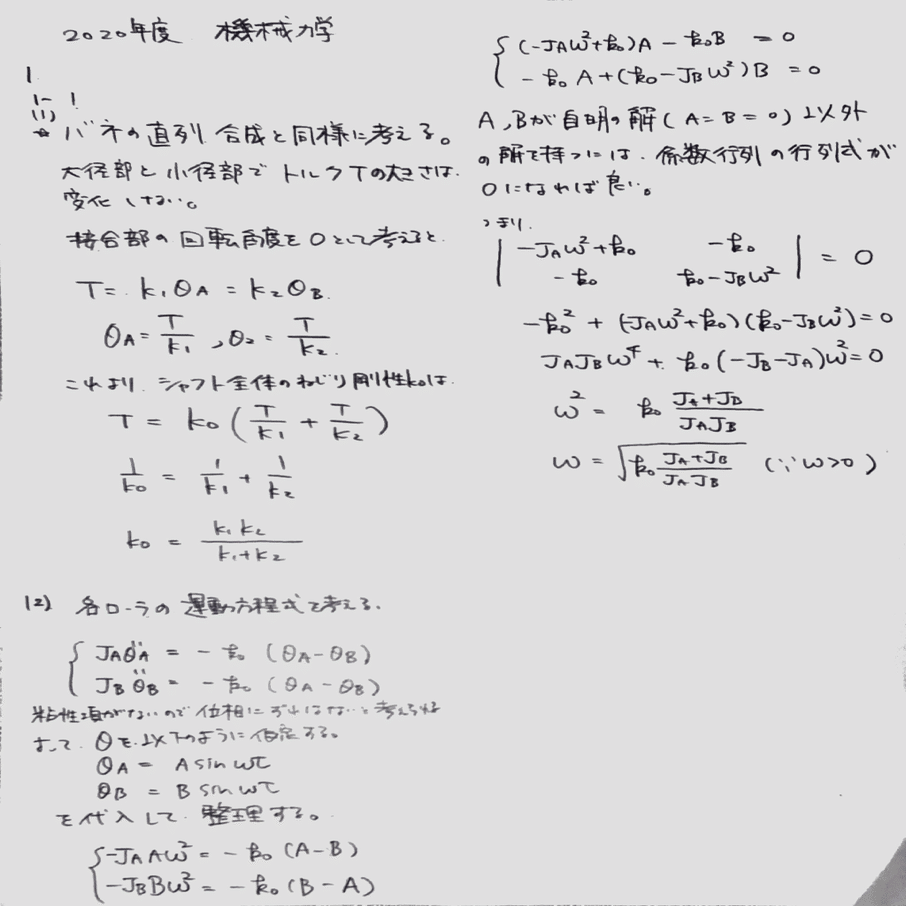 2020年度 機械力学
1.
1-1
(1)
☆ バネの直列合成と同様に考える。
大径部と小径部でトルクTの大きさは、
変化しない。
接合部の回転角度を0として考えると
T = k₁θA = k₂θB.
θA = T/k₁ , θ₂ = T/k₂.
これより、シャフト全体のねじり剛性k₀は、
T = k₀ (T/k₁ + T/k₂)
1/k₀ = 1/k₁ + 1/k₂
k₀ = k₁k₂/(k₁+k₂)
(2) 各ローラの運動方程式を考える.
{ JAθ̈A = - k₀ (θA-θB)
JBθ̈B = - k₀ (θA-θB)
粘性項がないので位相にずれはないと考えられる
よって、θを以下のように仮定する。
θA = A sin ωt
θB = B sin ωt
を代入して、整理する。
{ -JAAω² = - k₀ (A-B)
-JBBω² = - k₀ (B-A)
{ (-JAω²+k₀)A - k₀B = 0
- k₀A + (k₀-JBω²)B = 0
A,Bが自明の解(A=B=0)以外
の解を持つには、係数行列の行列式が
0になれば良い。
つまり、
| -JAω²+k₀ -k₀ | = 0
| -k₀ k₀-JBω² |
-k₀² + (-JAω²+k₀)(k₀-JBω²) = 0
JAJBω⁴ + k₀(-JB-JA)ω² = 0
ω² = k₀ (JA+JB)/(JAJB)
ω = √(k₀ (JA+JB)/(JAJB)) (∵ω>0)